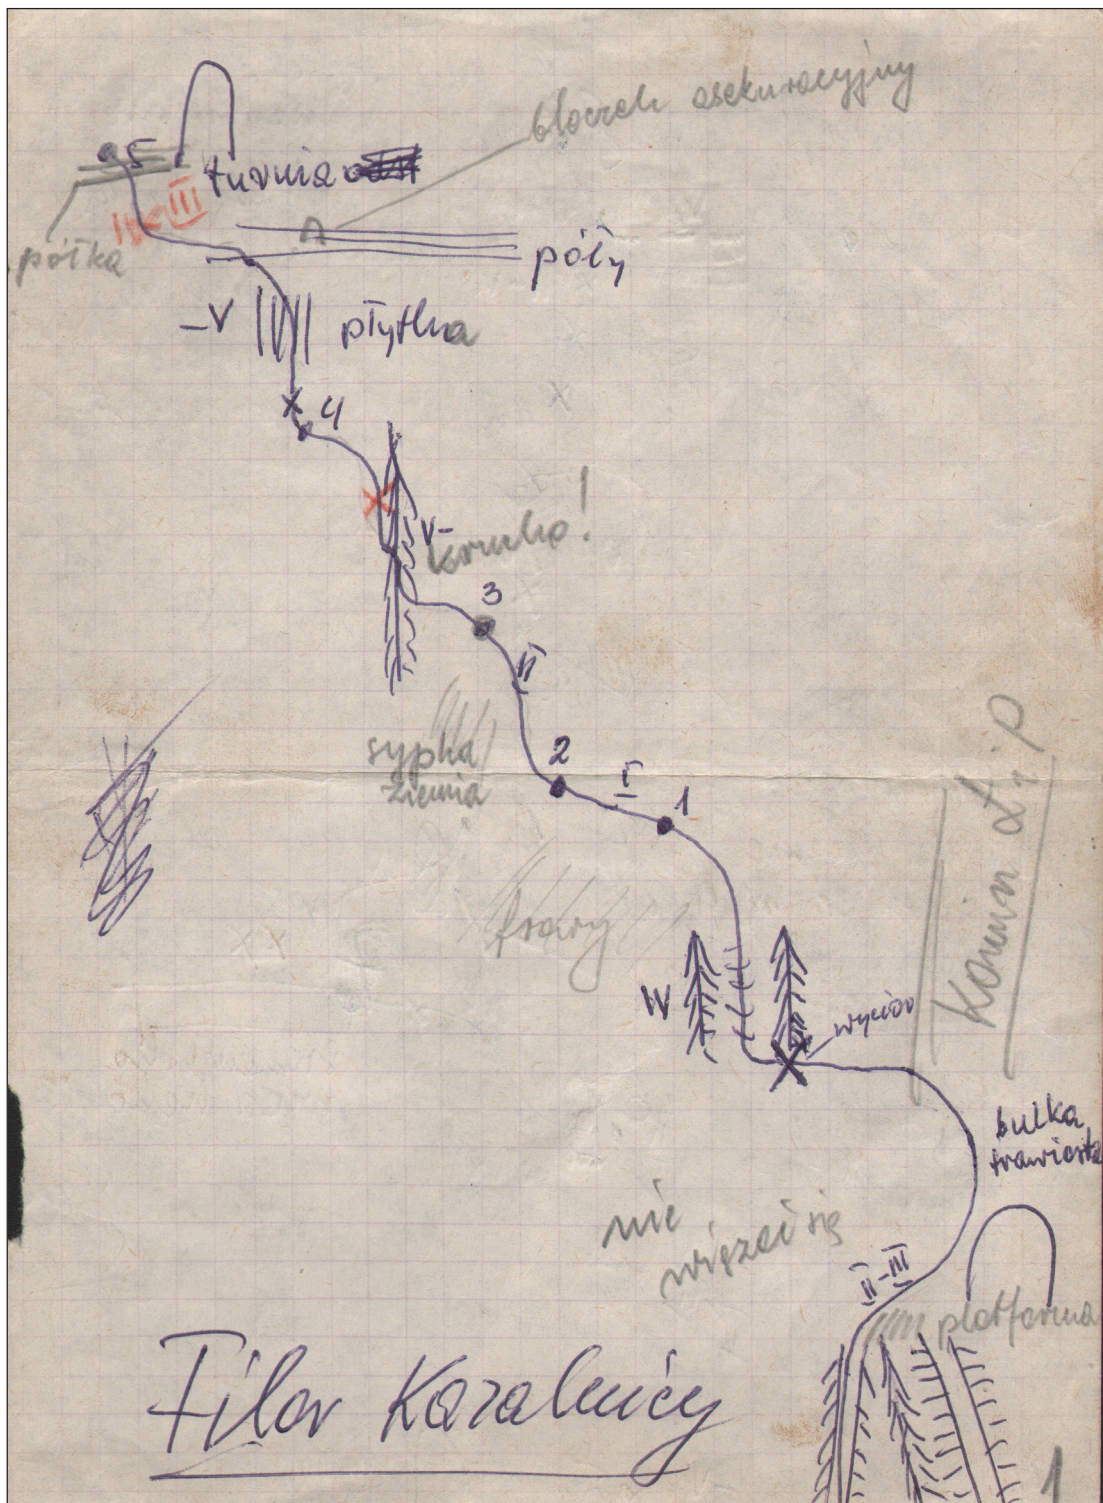 bloczek asekuracyjny
5
turnia
III
półka
póły
-V płytka
4
V-
krucho!
3
II
sypka
ziemia
2
I
1
Komin Ł i P
trawy
IV
wycior
bulka
trawiasta
nie
wiązać się
II-III
platforma
Filar Kazalnicy
1